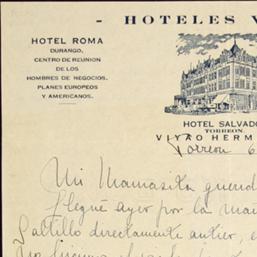 - HOTELES V
HOTEL ROMA
DURANGO.
CENTRO DE REUNION
DE LOS
HOMBRES DE NEGOCIOS.
PLANES EUROPEOS
Y AMERICANOS.
HOTEL SALVADO
TORREON.
VIYAO HERM
Torreon 6
Mi Mamasita querid
Llegué ayer por la mañ
Saltillo directamente antier, e